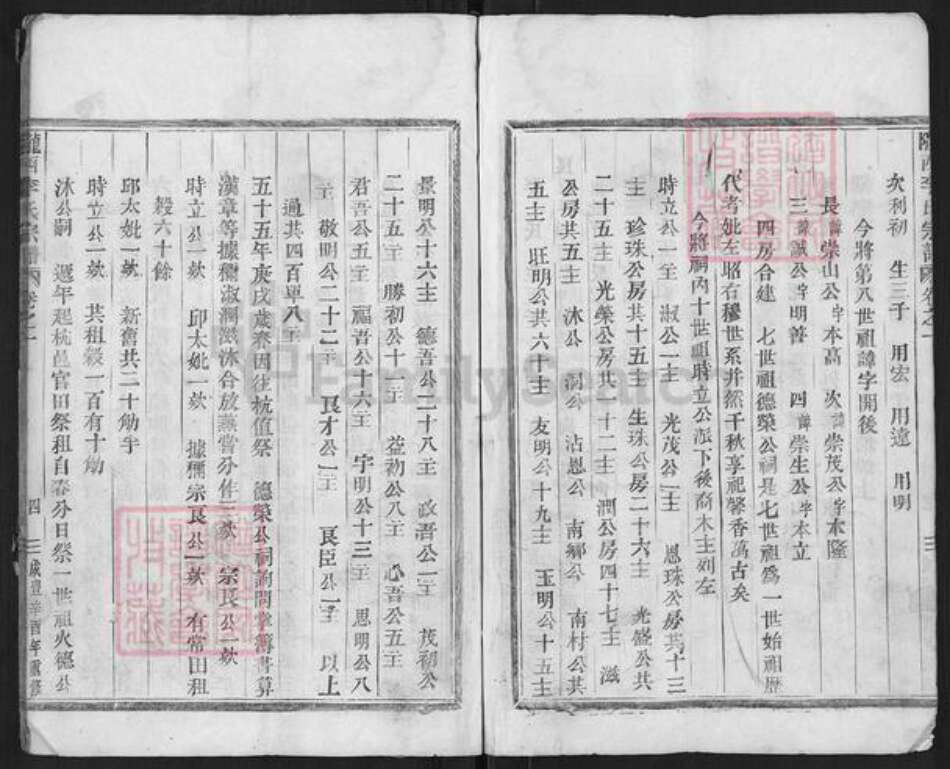 隴西李氏宗譜 卷之一
次利初 生三子 用宏 用遠 用明
今將第八世祖諱字開後
長諱崇山公字本高 次諱崇茂公字本隆
三諱誠公字明善 四諱崇生公字本立
四房合建 七世祖德榮公祠是七世祖爲一世始祖歷
代考妣左昭右穆世系井然千秋享祀馨香萬古矣
今將祠內十世祖時立公派下後裔木主列左
時立公一主 淑公一主 光茂公一主 恩珠公房共十三
主 珍珠公房共十五主 生珠公房二十六主 光盛公共
二十五主 光榮公房共二十二主 潤公房四十七主 滋
公房共五主 沐公 洞公 沾恩公 南鄉公 南村公其
五主 旺明公共六十主 友明公十九主 玉明公十五主
景明公十六主 德吾公二十八主 政吾公一主 茂初公
二十五主 勝初公十一主 益初公八主 心吾公五主
君吾公五主 福吾公十六主 宇明公十三主 思明公八
主 敬明公二十二主 良才公一主 良臣公一主 以上
通共四百單八主
五十五年庚戌歲春因往杭值祭 德榮公祠詢問掌簿書算
漢章等據穪淑潤滋沐合放蒸嘗分作三欵 宗良公一欵
時立公一欵 邱太妣一欵 據穪宗良公一欵 有常田租
穀六十餘
邱太妣一欵 新舊共二十觔乎
時立公一欵 共租穀一百有十觔
沐公嗣 遞年赴杭邑官田祭祖自春分日祭一世祖火德公
隴西李氏宗譜 卷之一
四
咸豐辛酉年重修